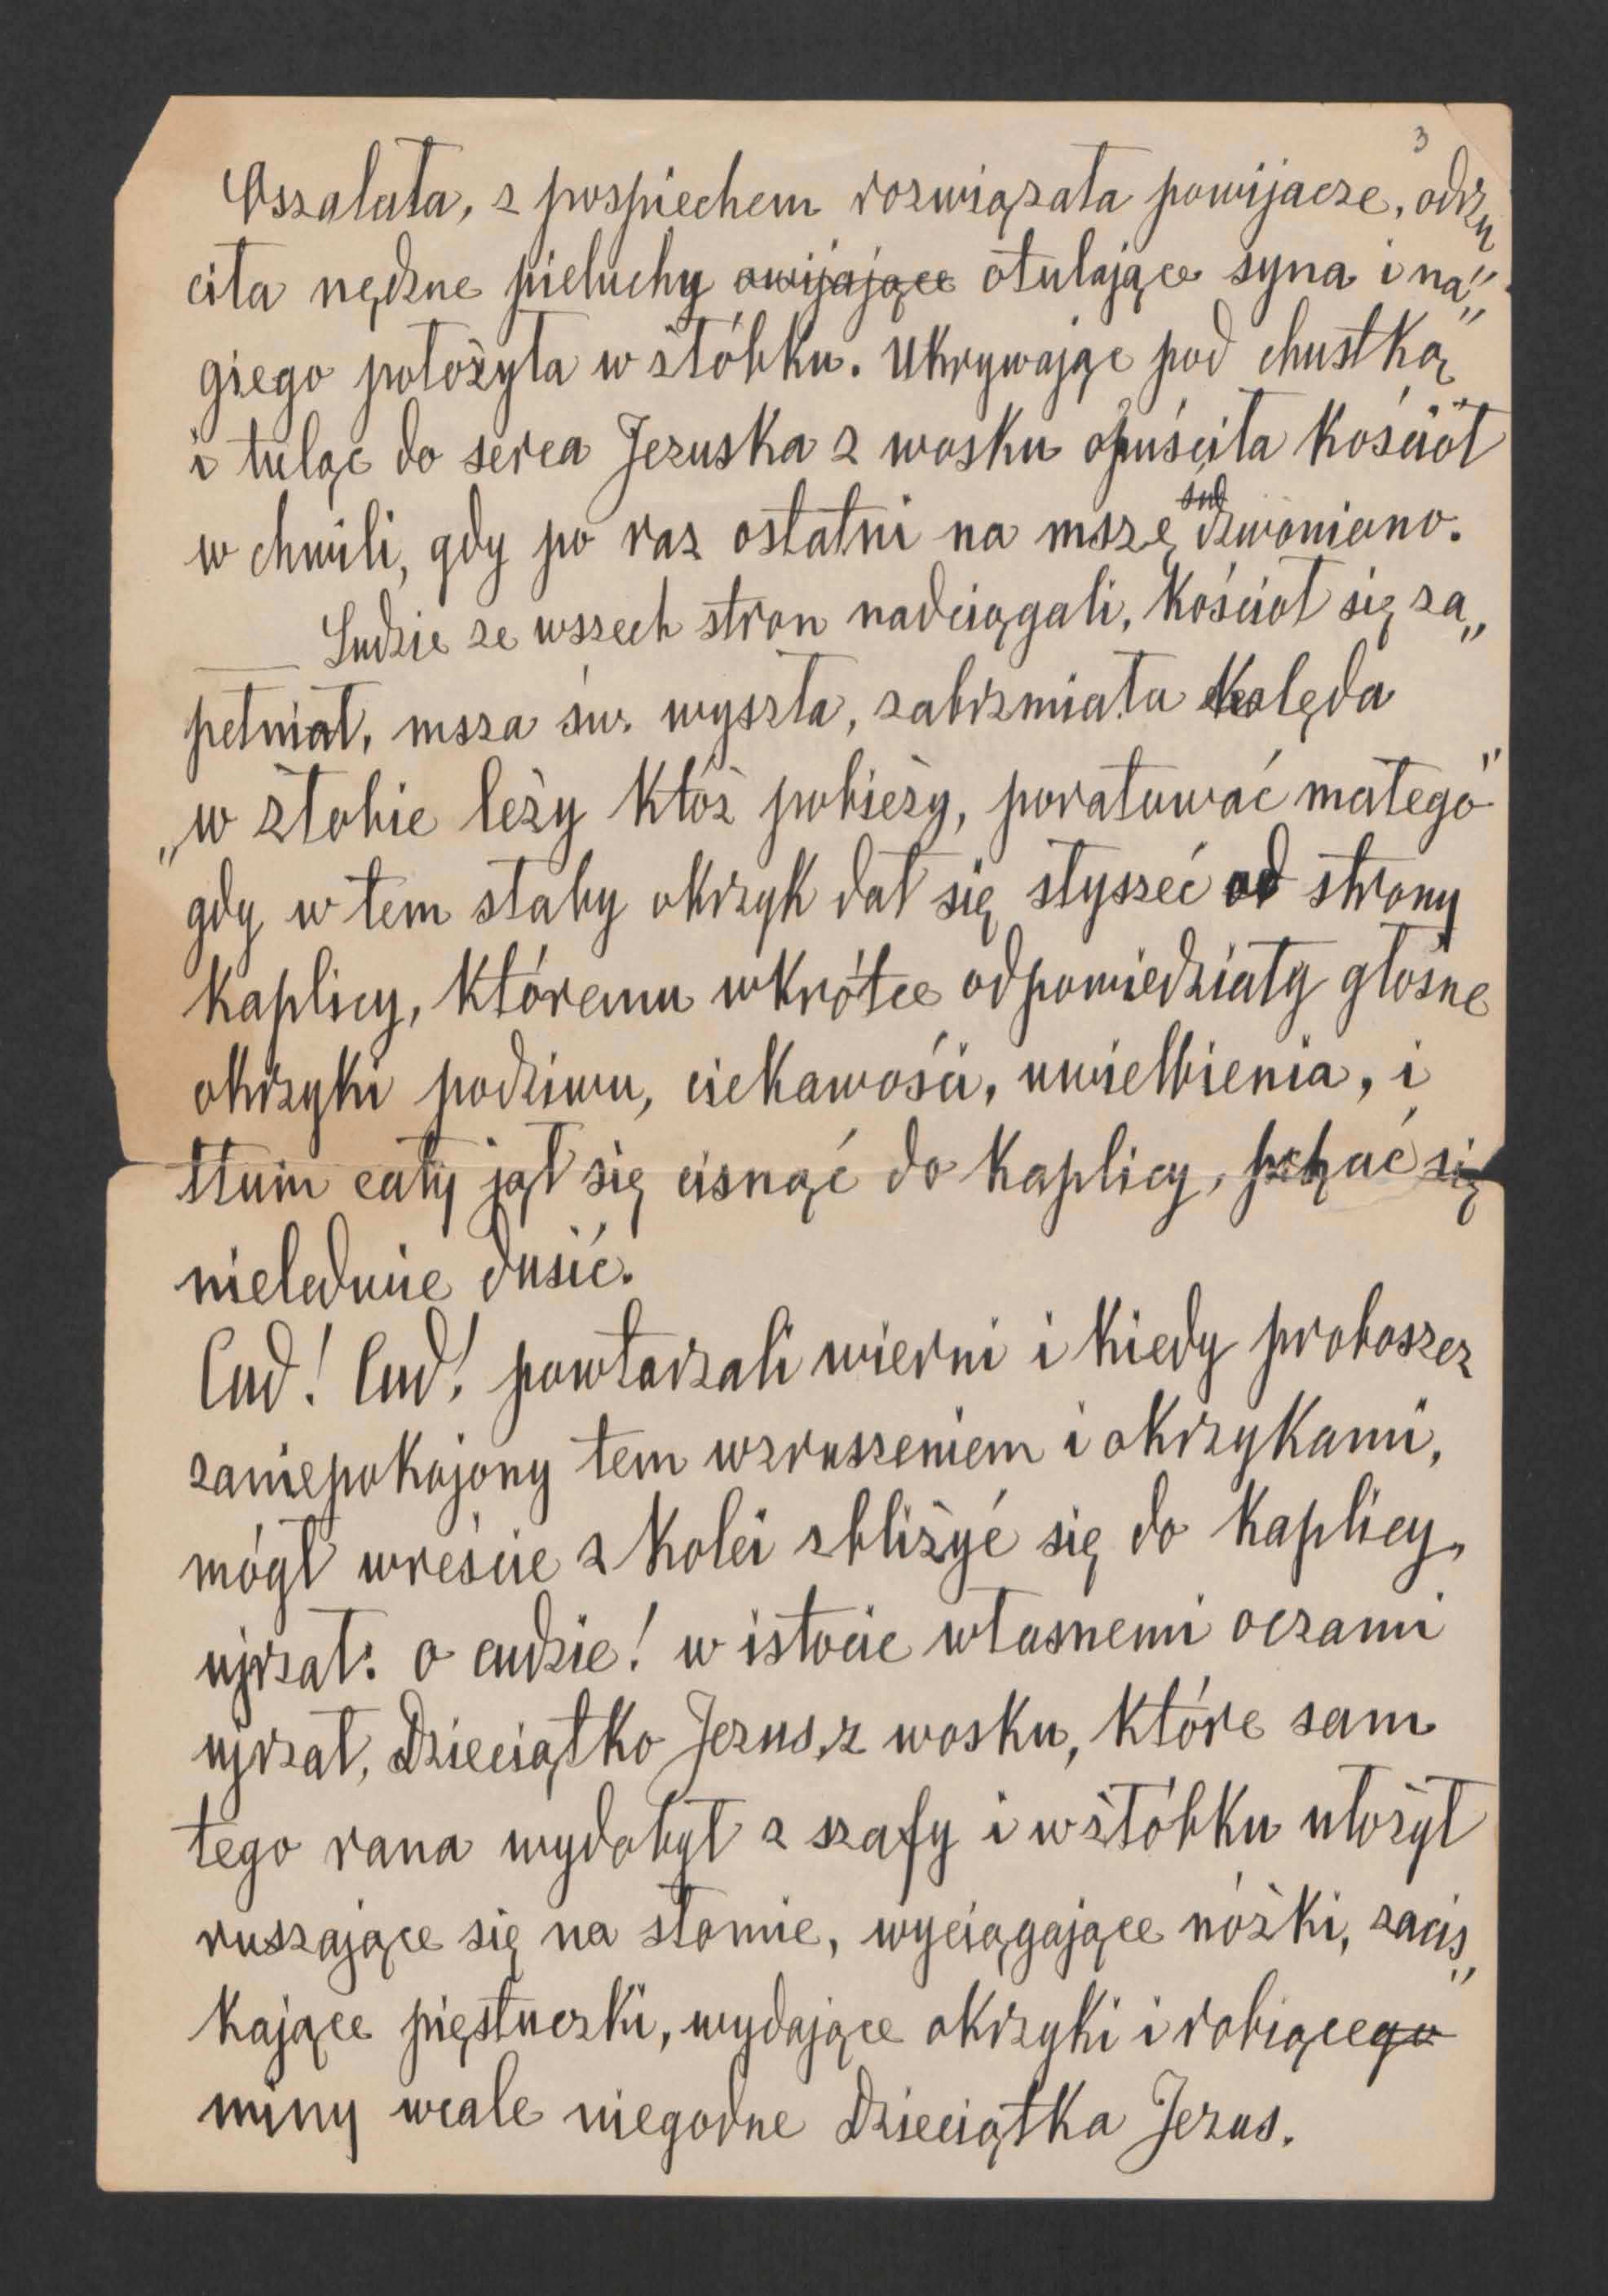 3
Oszalała, z pospiechem rozwiązała powijacze, odrzu
ciła nędzne pieluchy owijające otulające syna i na„
giego położyła w żłóbku. Ukrywając pod chustką
i tuląc do serca Jezuska z wosku opuściła kościół
w chwili, gdy po raz ostatni na mszę dzwoniono.
Ludzie ze wszech stron nadciągali, kościół się za„
pełniał, msza św. wyszła, zabrzmiała kolęda
„w żłobie leży któż pobieży, poratować małego"
gdy w tem słaby okrzyk dał się słyszeć od strony
kaplicy, któremu wkrótce odpowiedziały głośne
okrzyki podziwu, ciekawości, uwielbienia, i
tłum cały jął się cisnąć do kaplicy, pchać się
nieledwie dusić.
Cud! Cud! powtarzali wierni i kiedy proboszcz
zaniepokojony tem wzruszeniem i okrzykami,
mógł wreście z kolei zbliżyć się do kaplicy,
ujrzał: o cudzie! w istocie własnemi oczami
ujrzał, Dzieciątko Jezus, z wosku, które sam
tego rana wydobył z szafy i w żłóbku ułożył
ruszające się na słomie, wyciągające nóżki, zacis„
kające pięstuczki, wydające okrzyki i robiącego
miny wcale niegodne Dzieciątka Jezus.